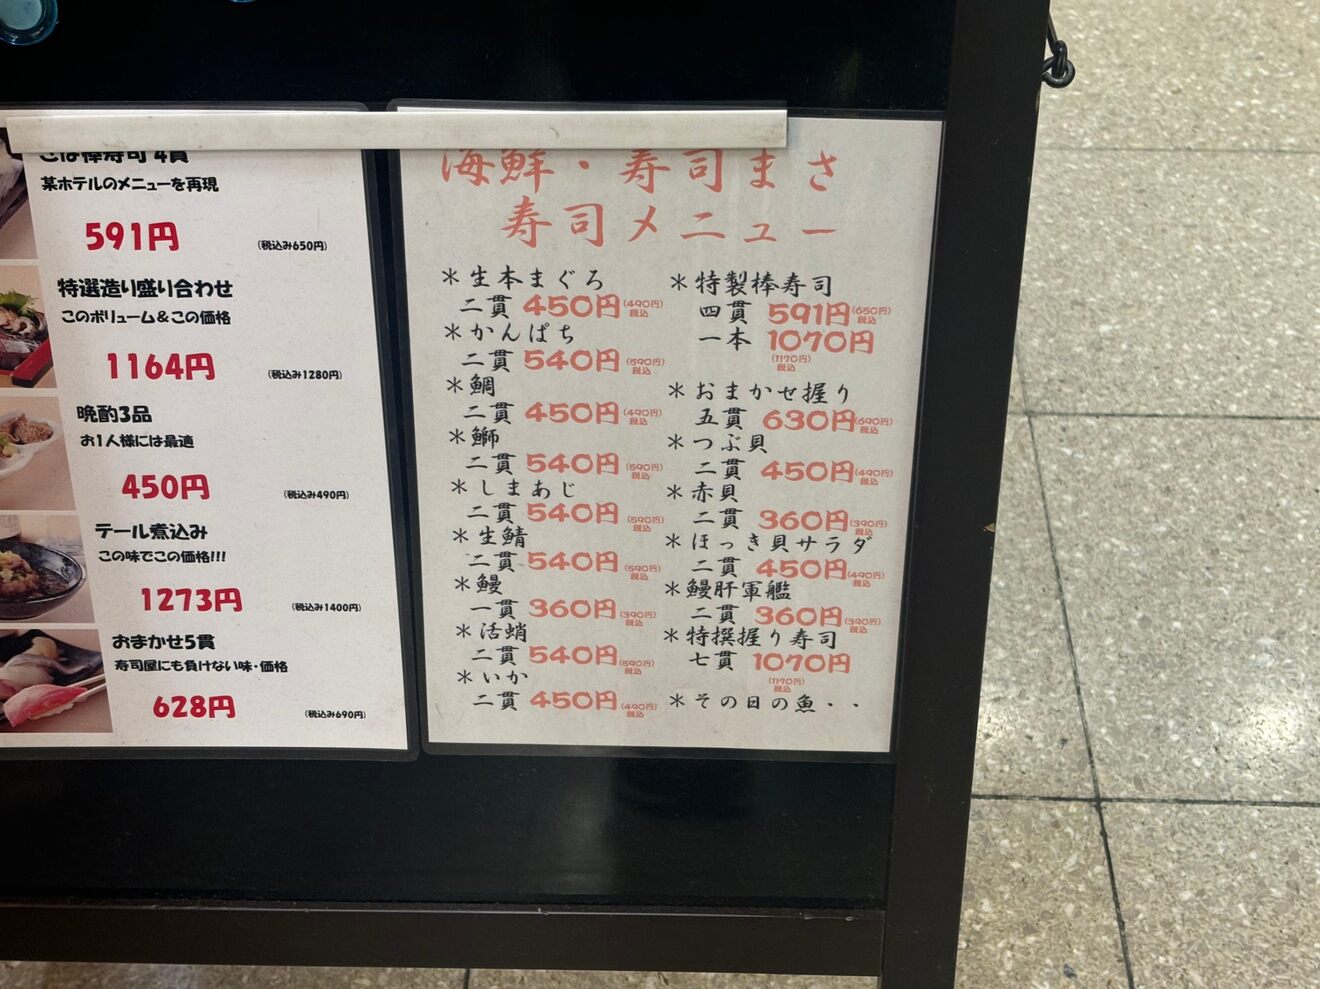 さば棒寿司 4貫
某ホテルのメニューを再現
591円 (税込み650円)
特選造り盛り合わせ
このボリューム＆この価格
1164円 (税込み1280円)
晩酌3品
お1人様には最適
450円 (税込み490円)
テール煮込み
この味でこの価格!!!
1273円 (税込み1400円)
おまかせ5貫
寿司屋にも負けない味・価格
628円 (税込み690円)
海鮮・寿司まさ
寿司メニュー
＊生本まぐろ
二貫 450円(490円)税込
＊かんぱち
二貫 540円(590円)税込
＊鯛
二貫 450円(490円)税込
＊鰤
二貫 540円(590円)税込
＊しまあじ
二貫 540円(590円)税込
＊生鯖
二貫 540円(590円)税込
＊鰻
一貫 360円(390円)税込
＊活蛸
二貫 540円(590円)税込
＊いか
二貫 450円(490円)税込
＊特製棒寿司
四貫 591円(650円)税込
一本 1070円
(1170円)税込
＊おまかせ握り
五貫 630円(690円)税込
＊つぶ貝
二貫 450円(490円)税込
＊赤貝
二貫 360円(390円)税込
＊ほっき貝サラダ
二貫 450円(490円)税込
＊鰻肝軍艦
二貫 360円(390円)税込
＊特撰握り寿司
七貫 1070円
(1170円)税込
＊その日の魚・・